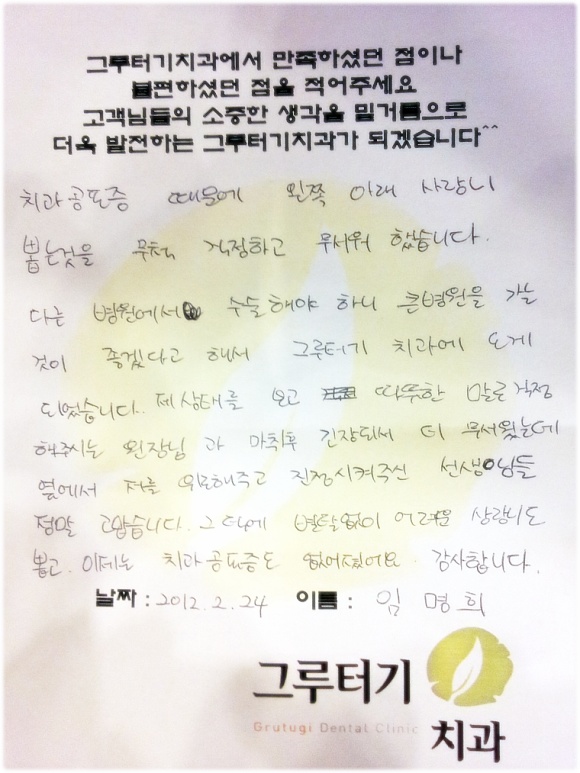 그루터기치과에서 만족하셨던 점이나
불편하셨던 점을 적어주세요
고객님들의 소중한 생각을 밑거름으로
더욱 발전하는 그루터기치과가 되겠습니다^^
치과공포증 때문에 왼쪽 아래 사랑니
뽑는것을 무척 걱정하고 무서워 했습니다.
다른 병원에서 수술해야 하니 큰병원을 가는
것이 좋겠다고 해서 그루터기 치과에 오게
되었습니다. 제상태를 보고 따뜻한 말로 걱정
해주시는 원장님과 마취후 긴장되서 더 무서웠는데
옆에서 저를 위로해주고 진정시켜주신 선생님들
정말 고맙습니다. 그 덕에 별탈없이 어려운 사랑니도
뽑고. 이제는 치과공포증도 없어졌어요. 감사합니다.
날짜 : 2012. 2. 24 이름 : 임명희
그루터기
Grutugi Dental Clinic
치과